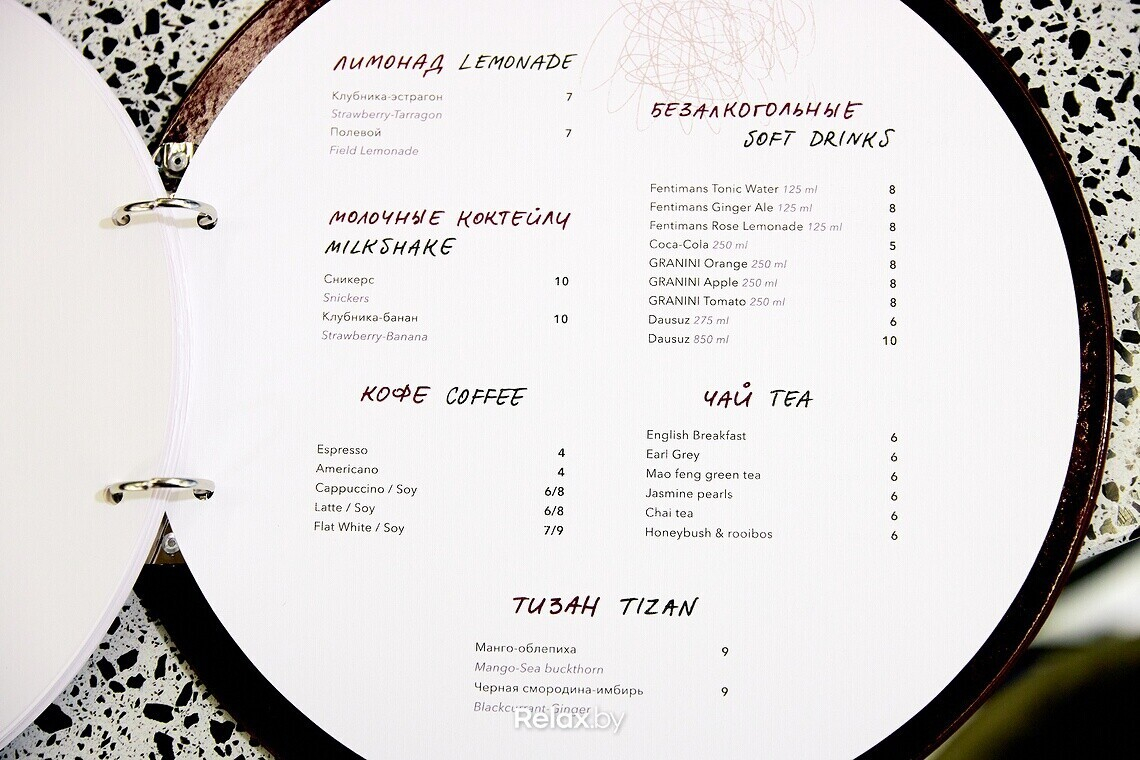 ЛИМОНАД LEMONADE
Клубника-эстрагон 7
Strawberry-Tarragon
Полевой 7
Field Lemonade
МОЛОЧНЫЕ КОКТЕЙЛИ
MILKSHAKE
Сникерс 10
Snickers
Клубника-банан 10
Strawberry-Banana
КОФЕ COFFEE
Espresso 4
Americano 4
Cappuccino / Soy 6/8
Latte / Soy 6/8
Flat White / Soy 7/9
БЕЗАЛКОГОЛЬНЫЕ
SOFT DRINKS
Fentimans Tonic Water 125 ml 8
Fentimans Ginger Ale 125 ml 8
Fentimans Rose Lemonade 125 ml 8
Coca-Cola 250 ml 5
GRANINI Orange 250 ml 8
GRANINI Apple 250 ml 8
GRANINI Tomato 250 ml 8
Dausuz 275 ml 6
Dausuz 850 ml 10
ЧАЙ TEA
English Breakfast 6
Earl Grey 6
Mao feng green tea 6
Jasmine pearls 6
Chai tea 6
Honeybush & rooibos 6
ТИЗАН TIZAN
Манго-облепиха 9
Mango-Sea buckthorn
Черная смородина-имбирь 9
Blackcurrant-Ginger
Relax.by